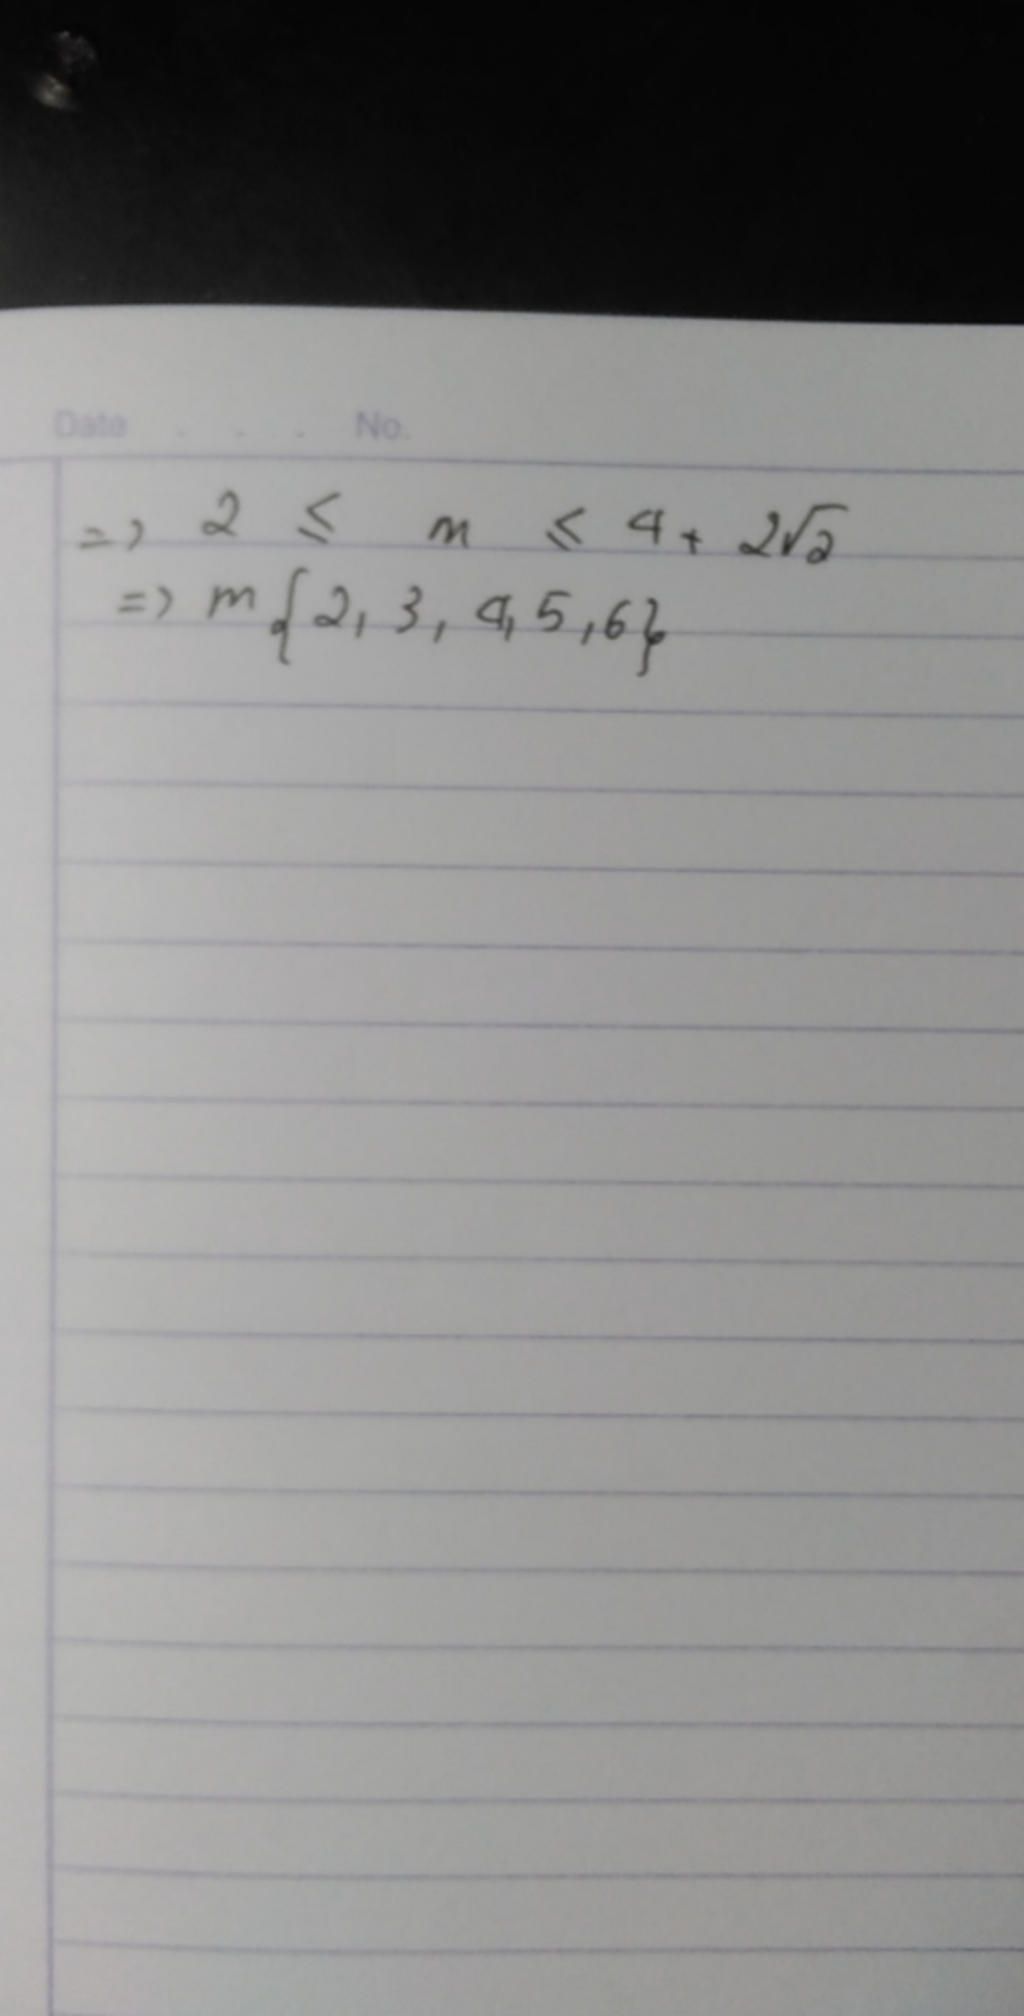 Date . . . No.
=> 2 ≤ m ≤ 4 + 2√2
=> m {2, 3, 4, 5, 6}